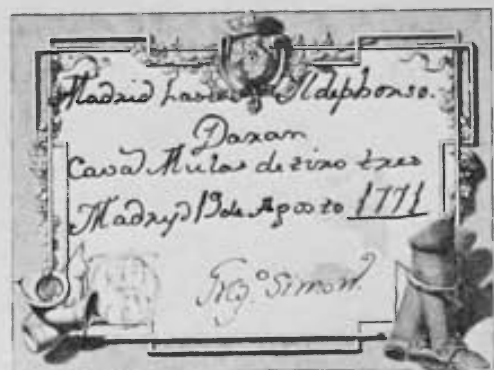 Madrid hasta Sn Ildephonso.
Daran
Casa Mulas de tiro tres
Madryd 13 de Agosto 1771
Simon.